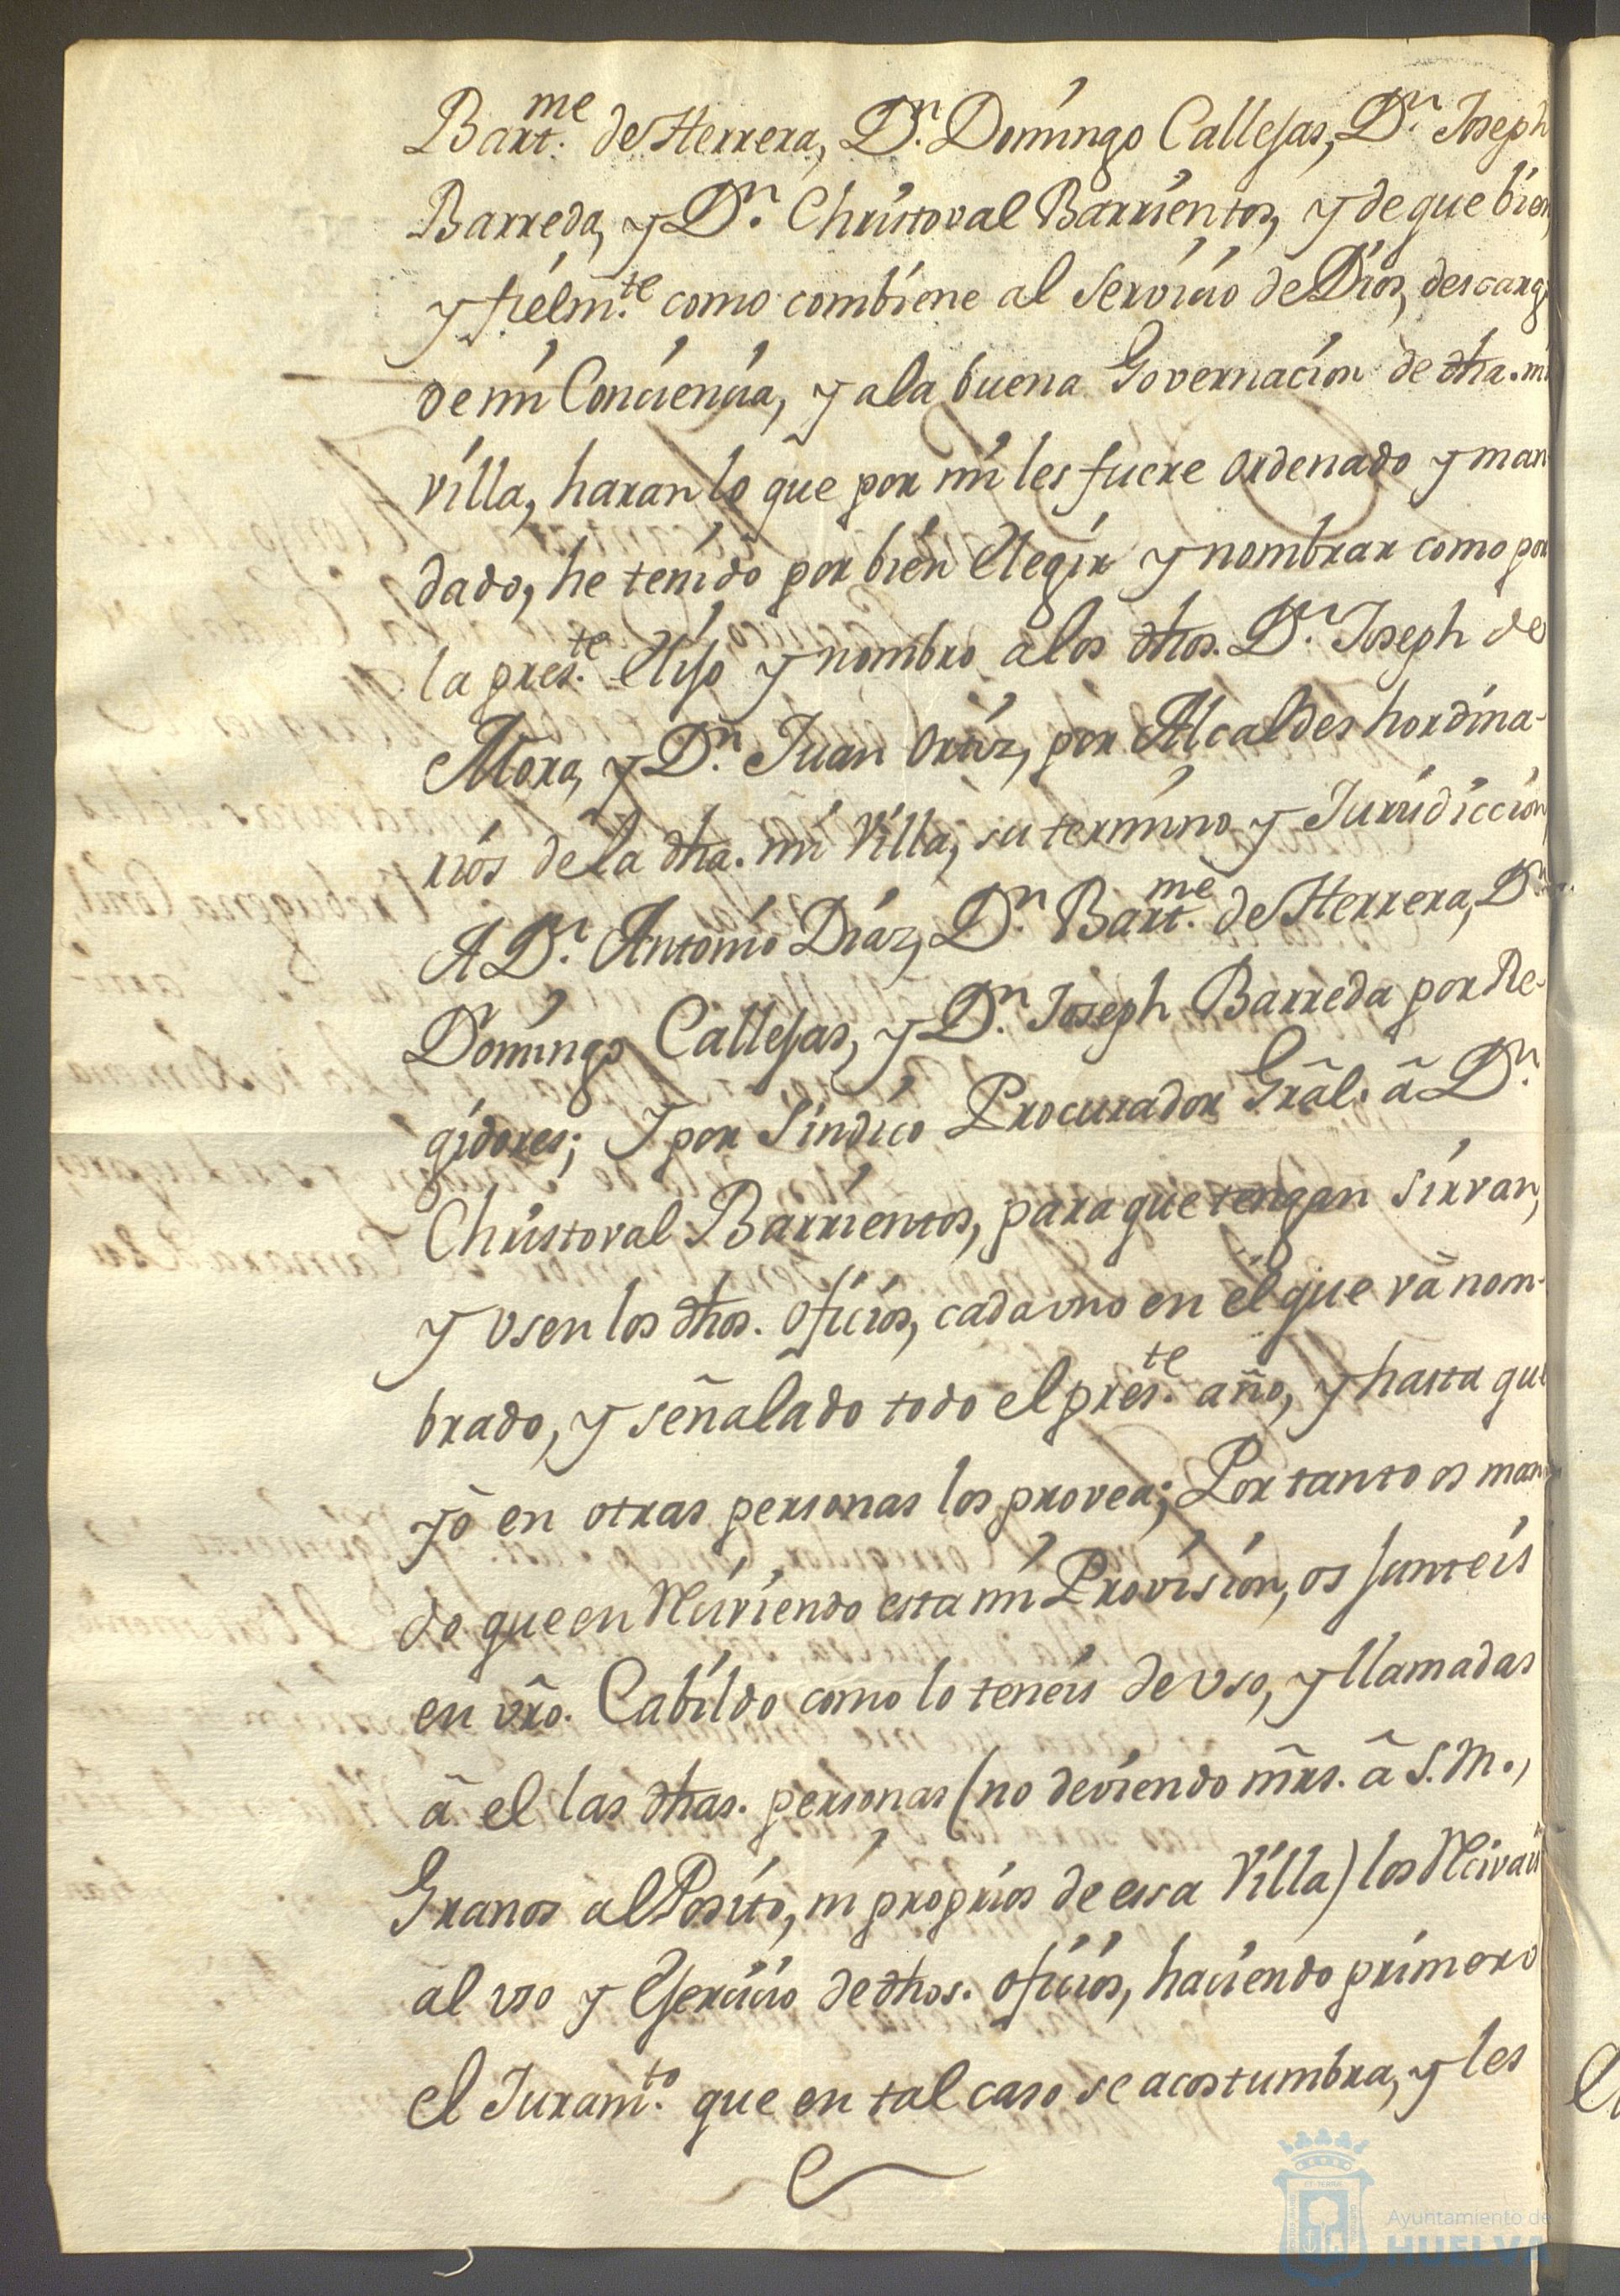 Bart.me de Herrera, D.n Domingo Callejas, D.n Joseph
Barreda, y D.n Christoval Barrientos, y de que bien,
y fielm.te como combiene al servicio de Dios, descarg
de mi Conciencia, y a la buena Governacion de dha. mi
villa, haran lo que por mi les fuere ordenado y man
dado, he tenido por bien elegir y nombrar como por
la pres.te elijo y nombro a los dhos. D.n Joseph de
Mora, y D.n Juan Ortiz, por Alcaldes hordina-
rios de la dha. mi Villa, su termino y Jurisdiccion,
A D.n Antonio Diaz, D.n Bart.me de Herrera, D.n
Domingo Callejas, y D.n Joseph Barreda por Re-
gidores; Y por Sindico Procurador Grãl. ã D.n
Christoval Barrientos, para que tengan sirvan,
y usen los dhos. oficios, cada uno en el que vã nom-
brado, y señalado todo el pres.te año, y hasta que
yo en otras personas los provea; Por tanto os man
do que en Reciviendo esta mi Provision, os junteis
en vrõ. Cabildo como lo teneis de uso, y llamadas
ã el las dhas. personas (no deviendo mrs. ã S.M.,
Granos al Posito, ni proprios de essa Villa) los Recivais
al uso y Exercicio de dhos. oficios, haciendo primero
el Juram.to que en tal caso se acostumbra, y les
Ayuntamiento de
HUELVA